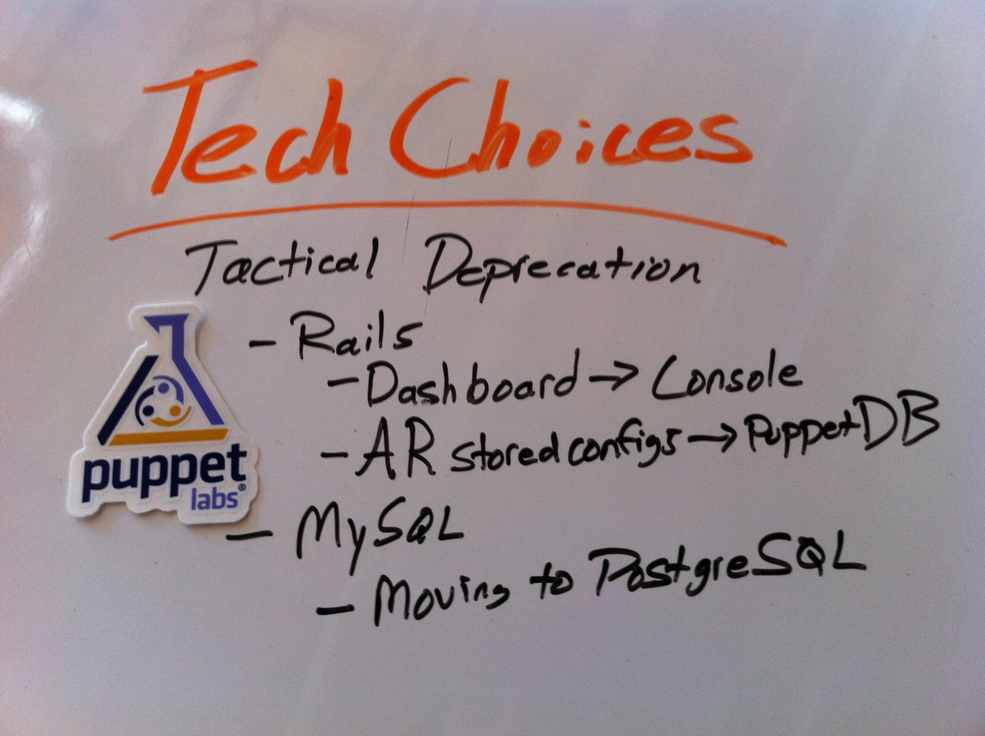 Tech Choices
Tactical Deprecation
- Rails
- Dashboard → Console
- AR storedconfigs → PuppetDB
puppet
labs®
- MySQL
- Moving to PostgreSQL